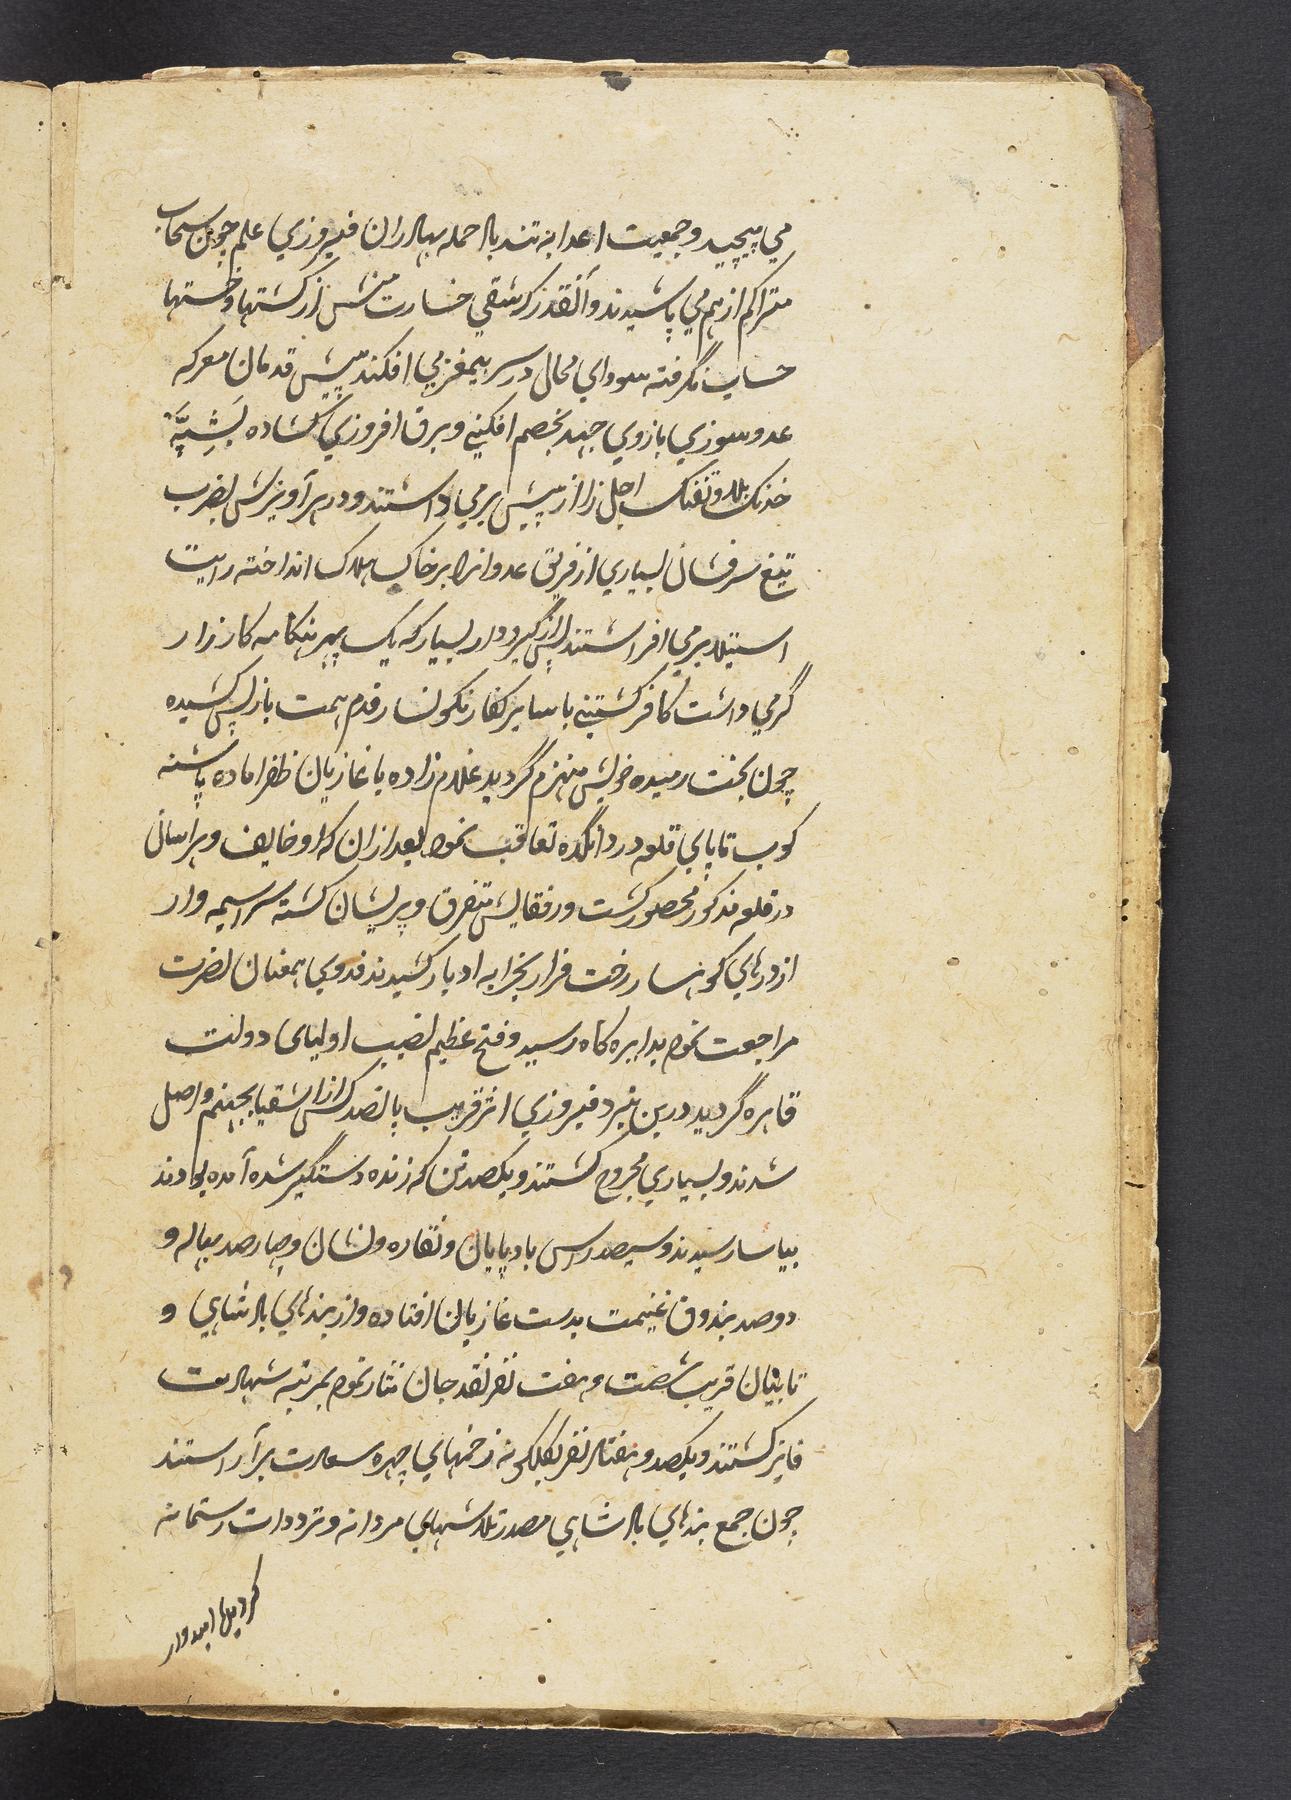 می پیچید و جمعیت اعدا به تندباد حمله بهادران فیروزی علم چون سحاب
متراکم از هم می پاشیدند و آنقدر که شقی خسارت منش از کشتها و خستها
حساب نگرفته سودای محال در سر بیمغز می افکند پیش قدمان معرکه
عدوسوزی بازوی جهد بخصم افکنی و برق افروزی کشاده
خدنک بلا و تفنک اجل را از پیش بر می داشتند و در هر آویزش بضرب
تیغ سرفشان بسیاری از فریق عدوانرا بر خاک هلاک انداخته رایت
استیلا بر می افراشتند پس از گیر و دار بسیار که یک پهر هنکامه کارزار
گرمی داشت کافر کشتنی با سایر کفار نکونسار قدم همت باز پس کشیده
چون بخت رمیده خویش منهزم گردید غلام زاده با غازیان ظفر اماده پاشنه
کوب تا پای قلعه تعاقب نمود بعد ازان که او خایف و هراسان
در قلعه مذکور محصور کشت و رفقایش متفرق و پریشان کشته سراسیمه وار
از درهای کوهسار رخت فرار بخرابه ادبار کشیدند فدوی همعنان نصرت
مراجعت نموده بدایره کاه رسید و فتح عظیم نصیب اولیای دولت
قاهره گردید درین نبرد فیروزی اثر قریب پانصد کس از اشقیا بجهنم واصل
شدند و بسیاری مجروح کشتند و یکصد تن که زنده دستگیر شده آمده بودند
بیاسا رسیدند و سیصد راس باد پایان و نقاره و نشان و چهارصد بهاله و
دوصد بندوق غنیمت بدست غازیان افتاده و از بندهای بادشاهی و
تابینان قریب شصت و هفت نفر نقد جان نثار نموده بمرتبه شهادت
فایز کشتند و یکصد و هفتاد نفر بکلکونه زخمهای چهره سعادت برآراستند
چون جمع بندهای بادشاهی مصدر تلاشهای مردانه و ترددات رستمانه
کردیدها امیدوار